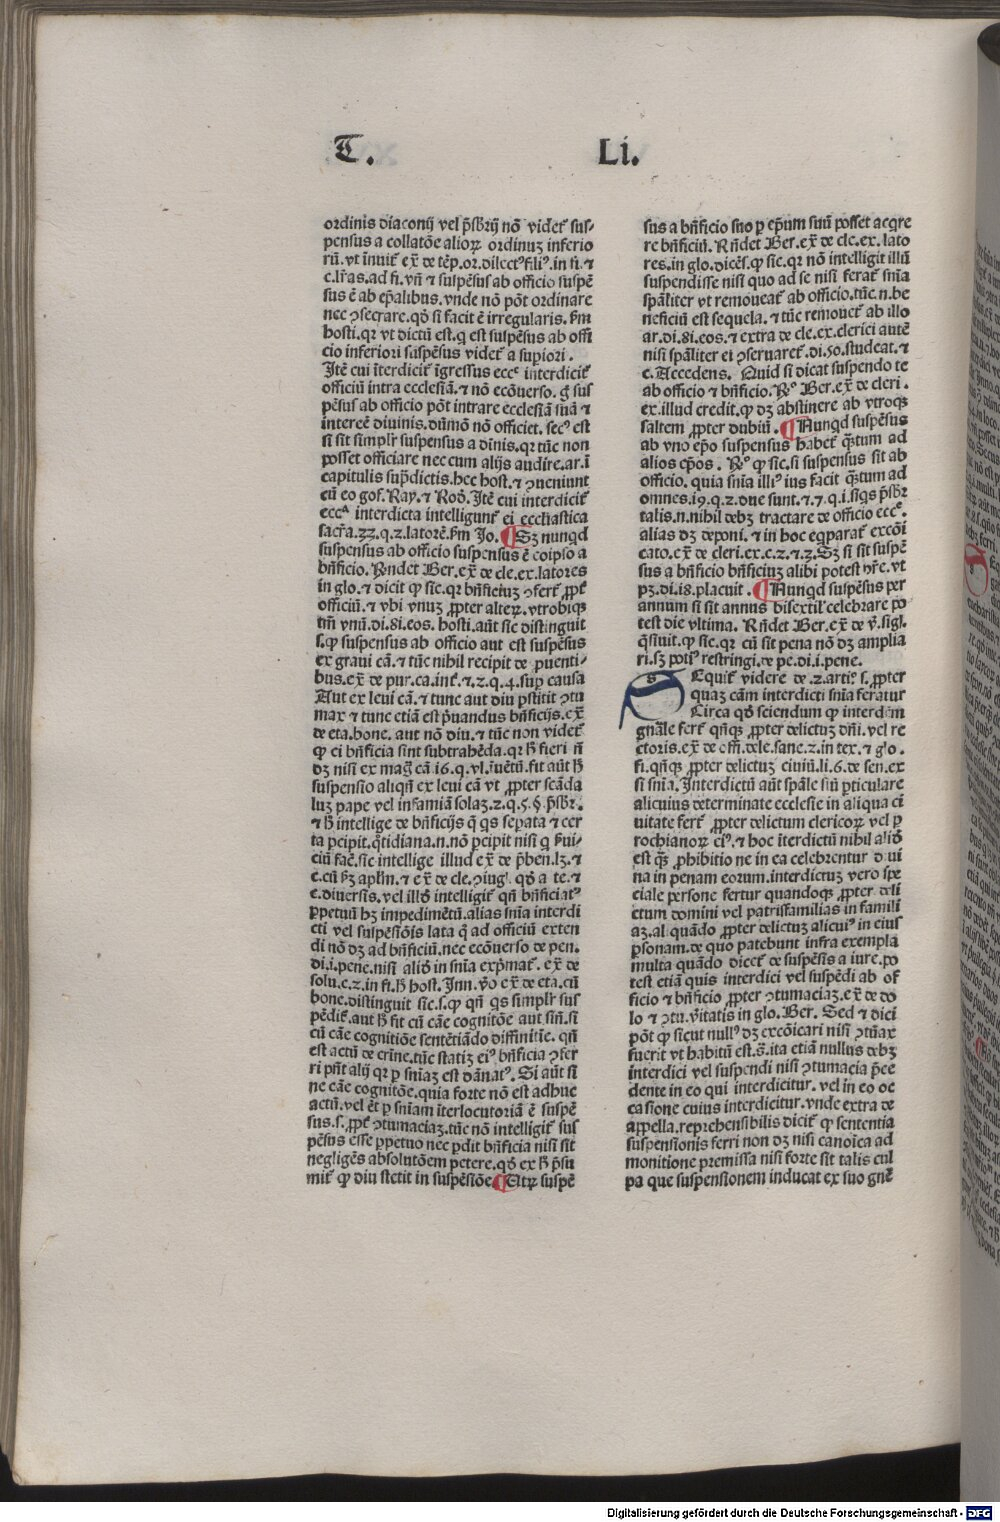 T. Li.
ordinis diaconij vel p̄sbr̄ij nō videt᷑ sus-
pensus a collatōe alioꝝ ordinuꝫ inferio
rū. vt īnuit᷑ ex̄ de tēp. or. dilect᷒ fili᷒. in fi. ⁊
c. lr̄as. ad fi. vn̄ ⁊ suspēsus ab officio suspē
sus ē ab ep̄alibus. vnde nō pōt ordinare
nec ꝯsecrare. qd̄ si facit ē irregularis. ẜm
hosti. qꝛ vt dictū est. q est suspēsus ab offi
cio inferiori suspēsus videt᷑ a supiori.
Itē cui īterdicit᷑ īgressus ecc͡e interdicit᷑
officiū intra ecclesiā. ⁊ nō ecōuerso. g̊ sus
pēsus ab officio pōt intrare ecclesiā suā ⁊
interēe diuinis. dūmō nō officiet. sec᷒ est
si sit simplr̄ suspensus a dīnis. qꝛ tūc non
posset officiare nec cum alijs audire. ar. ī
capitulis sup̄dictis. hec host. ⁊ ꝯueniunt
cū eo gof. Ray. ⁊ Rod̄. Itē cui interdicit᷑
ecc͡a interdicta intelligunt᷑ ei ecclīastica
sacr̄a. 22. q. 2. latorē. ẜm Jo. ¶ Sꝫ nunqd
suspensus ab officio suspensus ē eoipso a
bn̄ficio. Rn̄det Ber. ex̄ de cle. ex. latores
in glo. ⁊ dicit ꝙ sic. qꝛ bn̄ficiuꝫ ꝯfert᷑ ꝓpt᷑
officiū. ⁊ vbi vnuꝫ ꝓpter alteꝝ. vtrobiqꝫ
tm̄ vnū. di. 81. eos. hosti. aūt sic distinguit
s. ꝙ suspensus ab officio aut est suspēsus
ex graui cā. ⁊ tūc nihil recipit de ꝓuenti-
bus. ex̄ de pur. ca. int᷑. ⁊ .2. q. 4. sup causa
Aut ex leui cā. ⁊ tunc aut diu ꝑstitit ꝯtu
max ⁊ tunc etiā est pͥuandus bn̄ficijs. ex̄
de eta. bone. aut nō diu. ⁊ tūc non videt᷑
ꝙ ei bn̄ficia sint subtrahēda. qꝛ h̄ fieri n̄
dꝫ nisi ex maḡ cā. 16. q. vl. īuētū. fit aūt h̄
suspensio aliqn̄ ex leui cā vt ꝓpter scāda
luꝫ pape vel infamiā solaꝫ. 2. q. 5. §. p̄sbr̄.
⁊ h̄ intellige de bn̄ficijs q̄ qs sepata ⁊ cer
ta ꝑcipit. q̄tidiana. n. nō ꝑcipit nisi q ẜui-
ciū fac̄. sic intellige illud ex̄ de p̄ben. lꝫ. ⁊
c. cū ẜꝫ apl̄m. ⁊ ex̄ de cle. ꝯiug. qd̄ a te. ⁊
c. diuersis. vel illd̄ intelligit᷑ qn̄ bn̄ficiat᷒
ꝑpetuū hꝫ impedimētū. alias sn̄ia interdi
cti vel suspēsiōis lata q̄ ad officiū exten
di nō dꝫ ad bn̄ficiū. nec ecōuerso de pen.
di. i. pene. nisi alid̄ in sn̄ia exp̄mat᷑. ex̄ de
solu. c. 2. in fi. h̄ host. Inn. v̊o ex̄ de eta. cū
bone. distinguit sic. s. ꝙ qn̄ qs simplr̄ sus
pēdit᷑. aut h̄ fit cū cāe cognitōe aut sin̄. si
cū cāe cognitiōe sentētiādo diffinitīe. qn̄
est actū de crīne. tūc statiꝫ ei᷒ bn̄ficia ꝯfer
ri pn̄t alij qꝛ ꝑ sn̄iaꝫ est dānat᷒. Si aūt si
ne cāe cognitōe. quia forte nō est adhuc
actū. vel ēt ꝑ sn̄iam īterlocutoriā ē suspē
sus. s. ꝓpt᷑ ꝯtumaciaꝫ. tūc nō intelligit᷑ sus
pēsus esse ꝑpetuo nec ꝑdit bn̄ficia nisi sit
negligēs absolutōem petere. qd̄ ex h̄ p̄su
mit᷑ ꝙ diu stetit in suspēsiōe. ¶ Utꝝ suspē
sus a bn̄ficio suo ꝑ ep̄um suū posset acqre
re bn̄ficiū. Rn̄det Ber. ex̄ de cle. ex. lato
res. in glo. dicēs. ꝙ sic. qꝛ nō intelligit illū
suspendisse nisi quo ad se nisi ferat᷑ sn̄ia
spāliter vt remoueat᷑ ab officio. tūc. n. be
neficiū est sequela. ⁊ tūc remouet᷑ ab illo
ar. di. 81. eos. ⁊ extra de cle. ex. clerici autē
nisi spāliter ei ꝯseruaret᷑. di. 50. studeat. ⁊
c. Accedens. Quid si dicat suspendo te
ab officio ⁊ bn̄ficio. R̊. Ber. ex̄ de cleri.
ex. illud credit. ꝙ dꝫ abstinere ab vtroqꝫ
saltem ꝓpter dubiū. ¶ Nunqd suspēsus
ab vno ep̄o suspensus habet᷑ q̄tum ad
alios ep̄os. R̊. ꝙ sic. si suspensus sit ab
officio. quia sn̄ia illi᷒ ius facit q̄tum ad
omnes. 19. q. 2. due sunt. ⁊ .7. q. i. siqs p̄sbr̄
talis. n. nihil debꝫ tractare de officio ecc͡e.
alias dꝫ deponi. ⁊ in hoc eqparat᷑ excōi
cato. ex̄ de cleri. ex. c. 2. ⁊ .3. Sꝫ si sit suspē
sus a bn̄ficio bn̄ficiuꝫ alibi potest hr̄e. vt
pꝫ. di. 18. placuit. ¶ Nunqd suspēsus per
annum si sit annus bisextil᷒ celebrare po
test die vltima. Rn̄det Ber. ex̄ de v̄. sigī.
q̄siuit. ꝙ sic. qꝛ cū sit pena nō dꝫ amplia
ri. sꝫ poti᷒ restringi. de pe. di. i. pene.
SEquit᷑ videre de .2. arti. s. ꝓpter
quaꝫ cām interdicti sn̄ia feratur
Circa qd̄ sciendum ꝙ interdcm
gnāle fert᷑ qn̄qꝫ ꝓpter delictuꝫ dn̄i. vel re
ctoris. ex̄ de offi. dele. sane. 2. in tex. ⁊ glo.
fi. qn̄qꝫ ꝓpter delictuꝫ ciuiū. li. 6. de sen. ex
si sn̄ia. Interdictū aūt spāle siū ꝑticulare
alicuius determinate ecclesie in aliqua ci
uitate fert᷑ ꝓpter delictum clericoꝝ vel ꝑ
rochianoꝝ ei᷒. ⁊ hoc īterdictū nihil alid̄
est q̄ꝫ ꝓhibitio ne in ea celebrentur diui
na in penam eorum. interdictuꝫ vero spe
ciale persone fertur quandoqꝫ ꝓpter deli
ctum domini vel patrisfamilias in famili
aꝫ. al quādo ꝓpter delictuꝫ alicui᷒ in eius
ꝑsonam. de quo patebunt infra exempla
multa quādo dicet᷑ de suspēsis a iure. po
test etiā quis interdici vel suspēdi ab of
ficio ⁊ bn̄ficio ꝓpter ꝯtumaciaꝫ. ex̄ de do
lo ⁊ ꝯtu. v̄itatis in glo. Ber. Sed ⁊ dici
pōt ꝙ sicut null᷒ dꝫ excōicari nisi ꝯtūax
fuerit vt habitū est. s̄. ita etiā nullus debꝫ
interdici vel suspendi nisi ꝯtumacia p̄ce
dente in eo qui interdicitur. vel in eo oc
casione cuius interdicitur. vnde extra de
appella. reprehensibilis dicit᷑ ꝙ sententia
suspensionis ferri non dꝫ nisi canoīca ad
monitione premissa nisi forte sit talis cul
pa que suspensionem inducat ex suo gn̄e
Digitalisierung gefördert durch die Deutsche Forschungsgemeinschaft - DFG